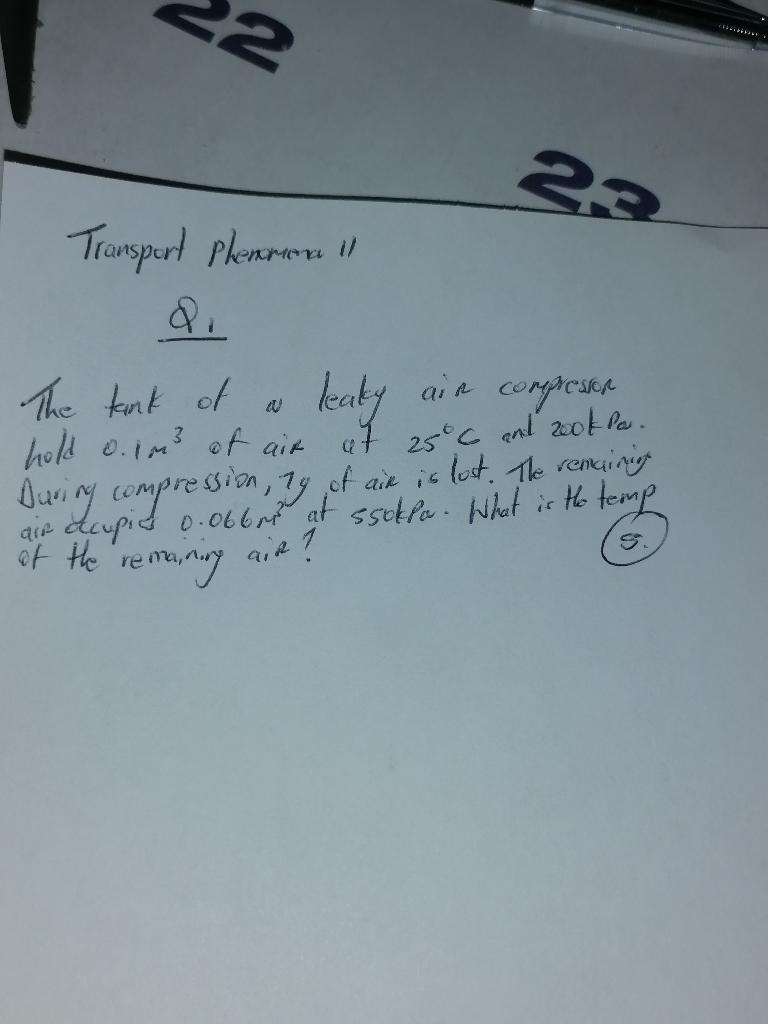 22
23
Transport Phenomena 11
Q1
The tank of a leaky air compressor
hold 0.1m³ of air at 25°C and 200kPa.
During compression, 7g of air is lost. The remaining
air occupies 0.066m³ at 550kPa. What is the temp
of the remaining air?
5.